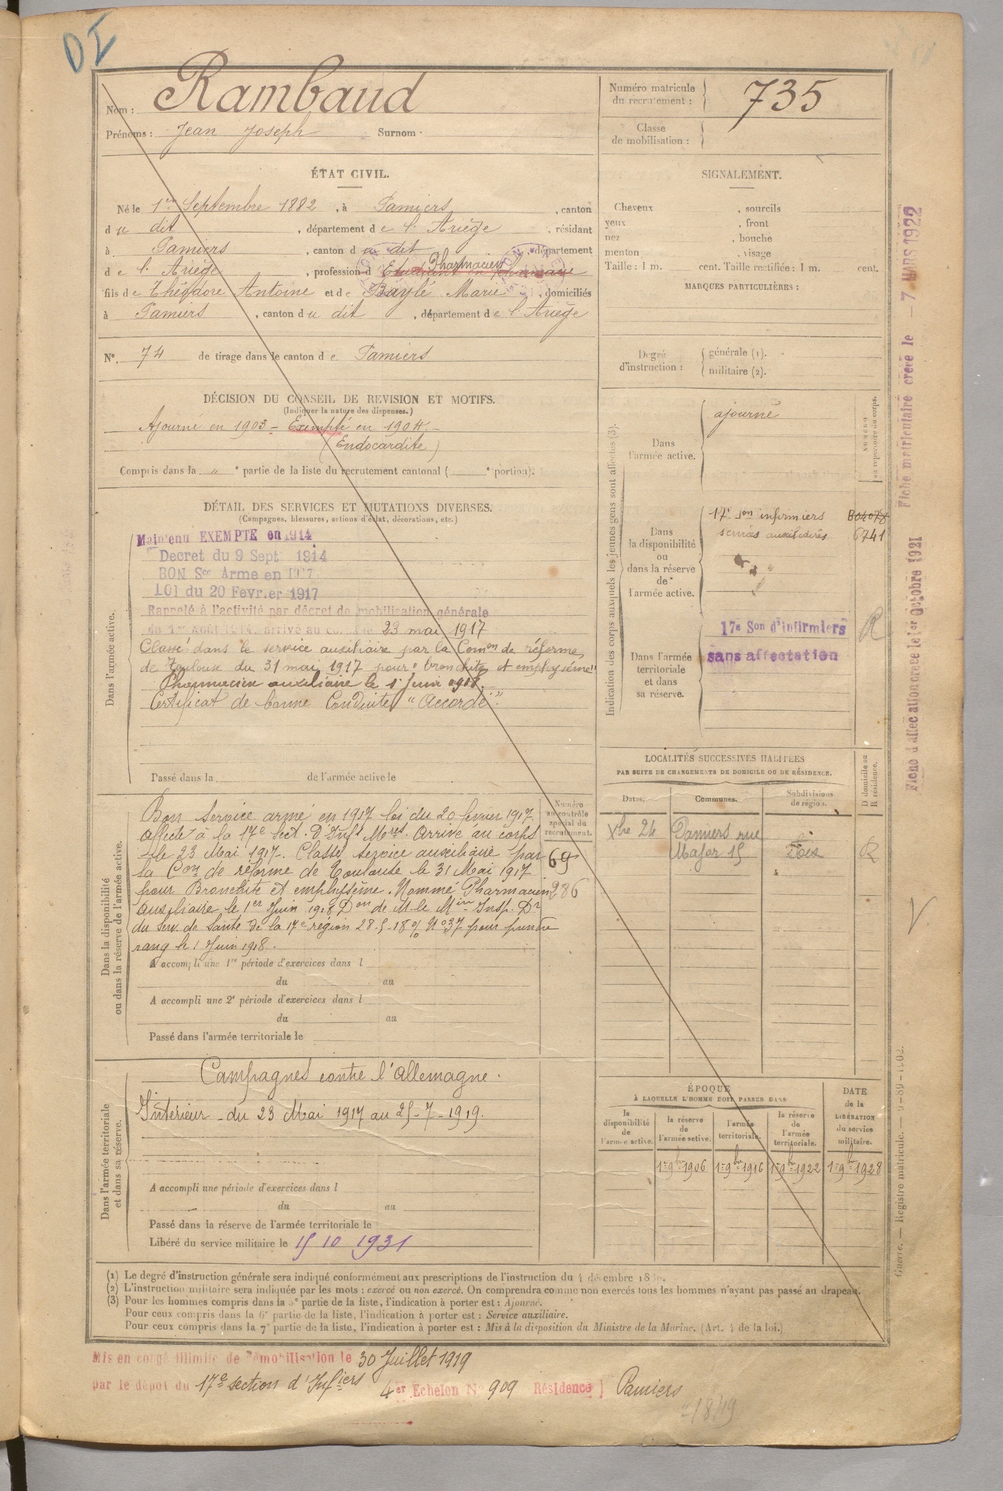 DI
Nom : Rambaud
Prénoms : Jean Joseph Surnom ·
Numéro matricule du recrutement : 735
Classe de mobilisation :
ÉTAT CIVIL.
Né le 1er Septembre 1882, à Pamiers, canton
du dit, département de l'Ariège, résidant
à Pamiers, canton du dit, département
de l'Ariège, profession d Etudiant en pharmacie Pharmacien
fils de Théodore Antoine et de Baylé Marie, domiciliés
à Pamiers, canton du dit, département de l'Ariège
N° 74 de tirage dans le canton de Pamiers
SIGNALEMENT.
Cheveux , sourcils
yeux , front
nez , bouche
menton , visage
Taille : 1 m. cent. Taille rectifiée : 1 m. cent.
MARQUES PARTICULIÈRES :
Degré d'instruction :
générale (1).
militaire (2).
DÉCISION DU CONSEIL DE REVISION ET MOTIFS.
(Indiquer la nature des dispenses.)
Ajourné en 1903 - Exempté en 1904 -
(Endocardite)
Compris dans la " e partie de la liste du recrutement cantonal ( e portion).
DÉTAIL DES SERVICES ET MUTATIONS DIVERSES.
(Campagnes, blessures, actions d'éclat, décorations, etc.)
Dans l'armée active.
Maintenu EXEMPTE en 1914
Decret du 9 Sept 1914
BON Sce Arme en 1917
LOI du 20 Fevrier 1917
Rappelé à l'activité par décret de mobilisation générale
du 1er Août 1914, arrivé au le 23 mai 1917
Classé dans le service auxiliaire par la Comon de réforme
de Toulouse du 31 mai 1917 pour "bronchite et emphysème"
Pharmacien auxiliaire le 1er Juin 1918.
Certificat de bonne Conduite "Accordé".
Passé dans la de l'armée active le
Indication des corps auxquels les jeunes gens sont affectés (3).
Dans l'armée active.
ajourné
Dans la disponibilité ou dans la réserve de l'armée active.
17e Son infirmiers
services auxiliaires
6741
Dans l'armée territoriale et dans sa réserve.
17e Son d'Infirmiers
sans affectation
R
LOCALITÉS SUCCESSIVES HABITÉES
PAR SUITE DE CHANGEMENTS DE DOMICILE OU DE RÉSIDENCE.
Dates. Communes. Subdivisions de région. D domicile ou R résidence.
Xbre 24 Pamiers rue
Major 15 R
Dans la disponibilité ou dans la réserve de l'armée active.
Numéro au contrôle spécial du recrutement.
69
286
Bon Service armé en 1917 loi du 20 février 1917
affecté à la 17e Sect. D'Infs Mres. Arrivé au corps
le 23 Mai 1917. Classé service auxiliaire par
la Con de réforme de Toulouse le 31 Mai 1917
pour Bronchite et emphysème. Nommé Pharmacien
Auxiliaire le 1er Juin 1918 Don de M. le Min Insp. Dr
du Serv. de Santé de la 17e région 28-5-18 N° 37 pour prendre
rang le 1 Juin 1918.
A accompli une 1re période d'exercices dans l
du au
A accompli une 2e période d'exercices dans l
du au
Passé dans l'armée territoriale le
Dans l'armée territoriale et dans sa réserve.
Campagnes contre l'Allemagne.
Intérieur - du 23 Mai 1917 au 25-7-1919.
A accompli une période d'exercices dans l
du au
Passé dans la réserve de l'armée territoriale le
Libéré du service militaire le 15 10 1931
ÉPOQUE
À LAQUELLE L'HOMME DOIT PASSER DANS
DATE de la LIBÉRATION du service militaire.
la disponibilité de l'armée active. la réserve de l'armée active. l'armée territoriale. la réserve de l'armée territoriale.
1er 9bre 1906 1er 9bre 1916 1er 9bre 1922 1er 9bre 1928
(1) Le degré d'instruction générale sera indiqué conformément aux prescriptions de l'instruction du 4 décembre
(2) L'instruction militaire sera indiquée par les mots : exercé ou non exercé. On comprendra comme non exercés tous les hommes n'ayant pas passé au drapeau.
(3) Pour les hommes compris dans la 5e partie de la liste, l'indication à porter est : Ajourné.
Pour ceux compris dans la 6e partie de la liste, l'indication à porter est : Service auxiliaire.
Pour ceux compris dans la 7e partie de la liste, l'indication à porter est : Mis à la disposition du Ministre de la Marine. (Art. 4 de la loi.)
Mis en congé illimité de démobilisation le 30 Juillet 1919
par le dépôt du 17e section d'Infiers 4er Echelon N° 909 Résidence } Pamiers
Fiche d'affectation créée le 1er Octobre 1921 Fiche matriculaire créée le - 7 MARS 1922
Guerre. — Registre matricule.